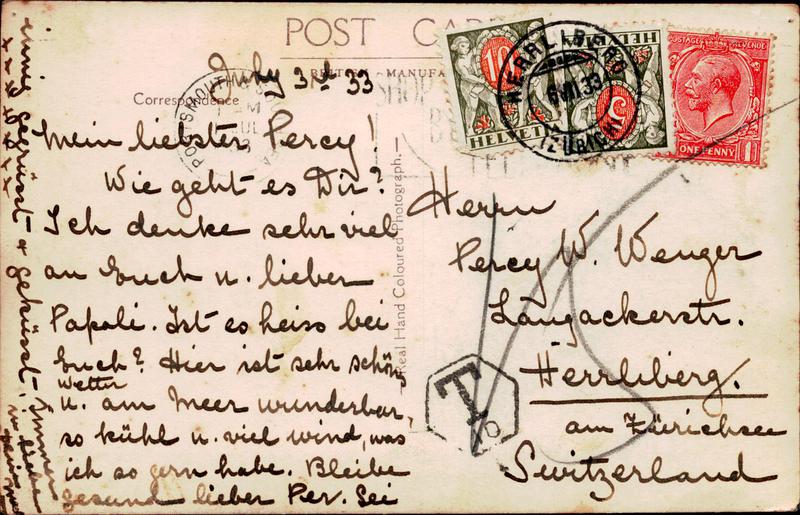 POST CARD
July 3rd 33
Correspondence
Mein liebster Percy!
Wie geht es Dir?
Ich denke sehr viel
an Euch u. lieber
Papali. Ist es heiss bei
Euch? Hier ist sehr schönes
Wetter
u. am Meer wunderbar,
so kühl u. viel wind, was
ich so gern habe. Bleibe
gesund lieber Per. Sei
innig gegrüsst & geküsst!
Immer
Real Hand Coloured Photograph.
Herrn
Percy W. Wenger
Langackerstr.
Herrliberg.
am Zürichsee
Switzerland
T
10
HELVETIA
5
HELVETIA
HERRLIBERG
(ZÜRICH)
POSTAGE REVENUE
ONE PENNY
PORTSMOUTH